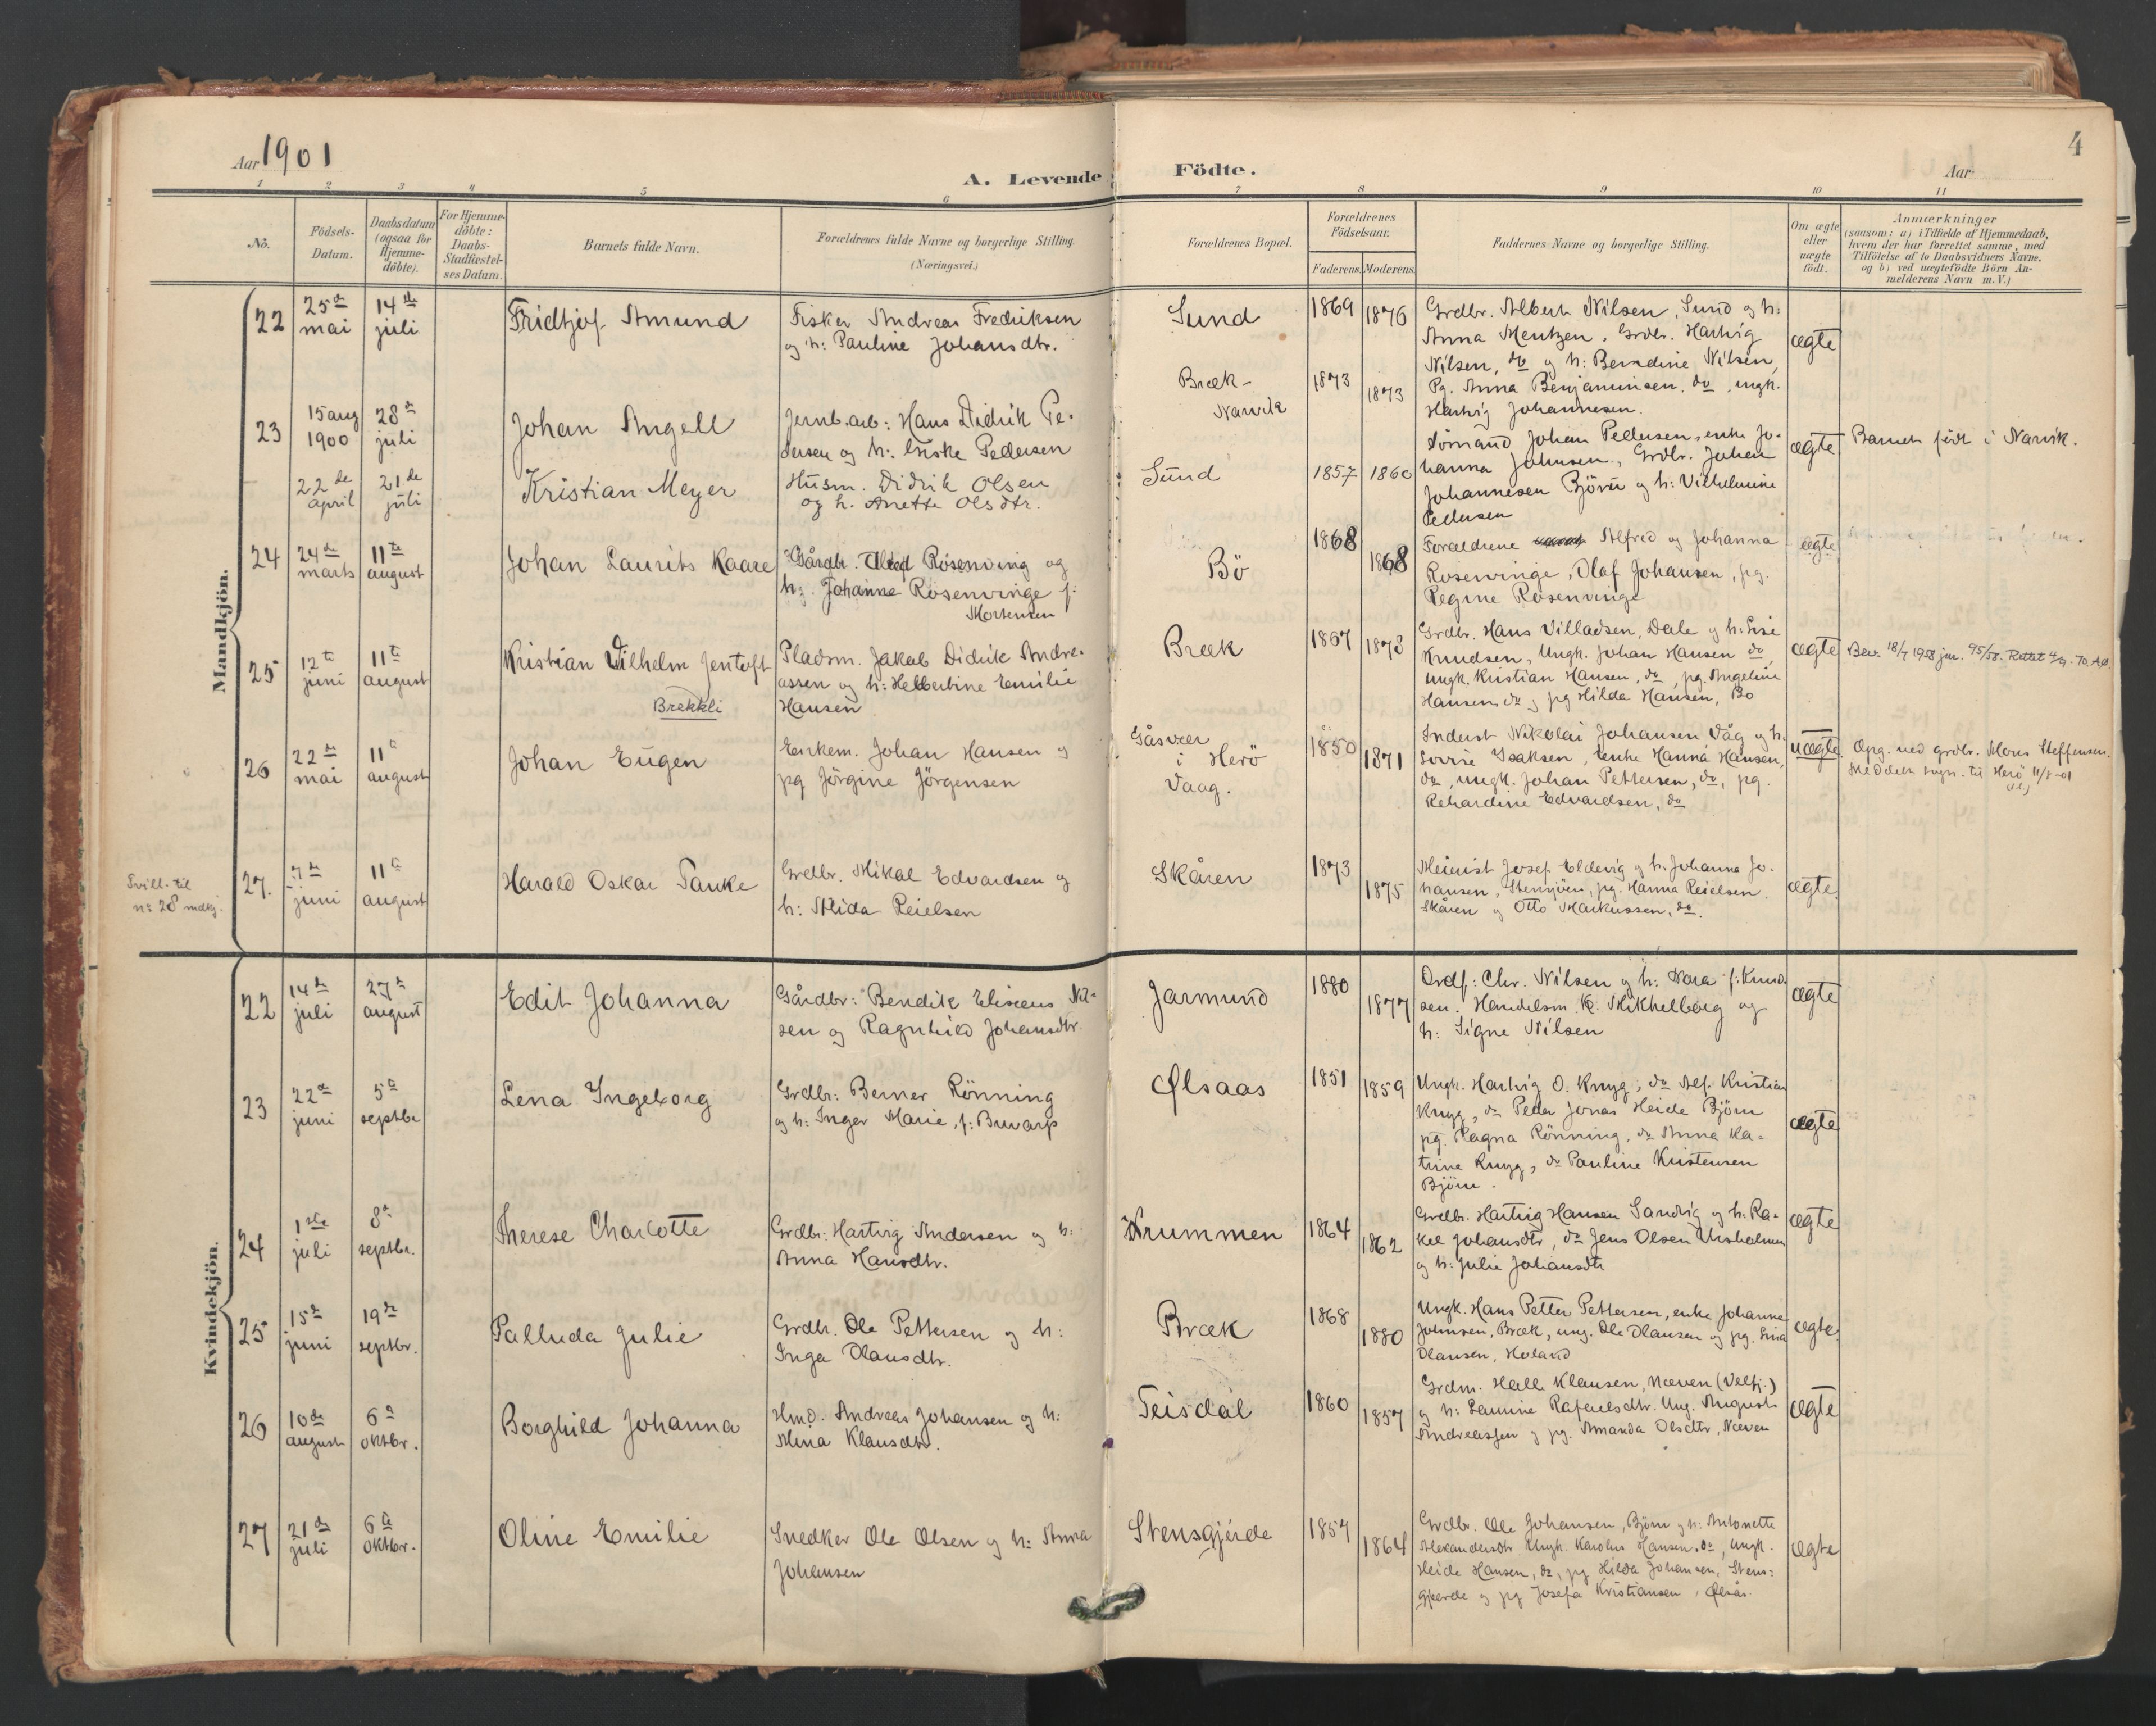 Aar 1901
A. Levende Födte.
Aar
4
1 2 3 4 5 6 7 8 9 10 11
No.
Födsels-
Datum.
Daabsdatum
(ogsaa for
Hjemme-
döbte).
For Hjemme-
döbte:
Daabs-
Stadfæstel-
ses Datum.
Barnets fulde Navn.
Forældrenes fulde Navne og borgerlige Stilling.
(Næringsvei.)
Forældrenes Bopæl.
Forældrenes
Födselsaar.
Faderens. Moderens.
Faddernes Navne og borgerlige Stilling.
Om ægte
eller
uægte
födt.
Anmærkninger
(saasom: a) i Tilfælde af Hjemmedaab,
hvem der har forrettet samme, med
Tilföielse af to Daabsvidners Navne,
og b) ved uægtefödte Börn An-
melderens Navn m.V.)
Mandkjön.
22
25de
mai
14de
juli
Fridtjof Amund
Fisker Andreas Fredriksen
og h: Pauline Johansdtr.
Sund
1869
1876
Grdbr. Albert Nilsen, Sund og h:
Anna Mentzen, Grdbr. Hartvig
Nilsen, do og h: Beradine Nilsen,
Pg. Anna Benjaminsen, do, ungk.
Hartvig Johannesen.
ægte
23
15 aug
1900
28de
juli
Johan Angell
Jernb.arb: Hans Didrik Pe-
dersen og h: Pedersen
Bræk-
Narvik
1873
1873
Johan Pettersen, enke Jo-
hanna Johnsen, Grdbr. Johan
Johannesen Björu og h: Vilhelmine
Pettersen
ægte
Barnet födt i Narvik.
22de
april
21de
juli
Kristian Meyer
Husm. Didrik Olsen
og h. Anette Olsdtr.
Sund
1857
1860
24
24de
marts
11te
august
Johan Laurits Kaare
Gårdbr. Alfred Rosenving og
h: Johanna Rosenvinge f:
Mortensen
Bö
1868
1868
Forældrene Alfred og Johanna
Rosenvinge, Olaf Johansen, pg.
Regine Rosenvinge
ægte
25
12te
juni
11te
august
Kristian Vilhelm Jentoft
Brekkli
Pladsm. Jakob Didrik Andre-
assen og h: Helbertine Emilie
Hansen
Bræk
1867
1873
Grdbr. Hans Villadsen, Dale og h: Lise
Knudsen, Ungk. Johan Hansen do,
ungk. Kristian Hansen, do, pg. Angeline
Hansen do og pg Hilda Hansen, Bö
ægte
Bev. 18/7 1958 jnr. 95/58. Rettet 4/9. 70. AØ.
26
22de
mai
11te
august
Johan Eugen
Enkem. Johan Hansen og
pg Jörgine Jörgensen
Gåsvær
i Herö
Vaag.
1850
1871
Inderst Nikolai Johansen Våg og h.
Lovise Isaksen, enke Hanna Hansen,
do, ungk. Johan Pettersen, do, pg.
Rehardine Edvardsen, do
uægte
Opg. ved grdbr. Mons Steffensen.
Meddelt sogn. til Herö 11/8-01
Tvill. til
no 28 mdkj.
27.
7de
juni
11te
august
Harald Oskar Tanke
Grdbr. Mikal Edvardsen og
h: Alida Reielsen
Skåren
1873
1875
Meierist Josef Eldevig og h. Johanna Jo-
hansen, Stensjöen, pg. Hanna Reielsen
Skåren og Otto Markussen, do.
ægte
Kvindekjön.
22
14de
juli
27de
august
Edit Johanna
Gårdbr: Bendik Eliseus Nil-
sen og Ragnhild Johansdtr.
Jarmund
1880
1877
Ordf: Chr. Nilsen og h: Nora f: Knud-
sen. Handelsm. K. Mikhelborg og
h: Signe Nilsen
ægte
23
22de
juni
5te
septbr
Lena Ingeborg
Grdbr: Berner Rönning
og h: Inger Marie, f: Buvarp
Ølsaas
1851
1859
Ungk. Hartvig O. Knyg, do Alf. Kristian
Knyg, do Peder Jonas Heide Björn
pg. Ragna Rönning, do Anna Ka-
trine Knyg, do Pauline Kristensen
Björn.
ægte
24
1ste
juli
8de
septbr.
Therese Charlotte
Grdbr: Hartvig Andersen og h:
Anna Hansdtr.
Krummen
1864
1862
Grdbr. Hartvig Hansen Sandvig og h: Ra-
kel Johansdtr, do Jens Olsen Ursholmen
og h: Julie Johansdtr
ægte
25
15de
juni
19de
septbr.
Palluda Julie
Grdbr. Ole Pettersen og h:
Inga Olausdtr.
Bræk
1868
1880
Ungk. Hans Petter Pettersen, enke Johanne
Johnsen, Bræk, ung. Ole Olausen og pg. Lina
Olausen, Holand
ægte
26
10de
august
6te
oktbr.
Borghild Johanna
Hmd. Andreas Johansen og h:
Mina Klausdtr.
Teisdal
1860
1857
Grdm. Halle Klausen, Næven (Velfj.)
og h: Laurine Rafaelsdtr. Ung. August
Andreassen og pg. Amanda Olsdtr, Næven
ægte
27
21de
juli
6te
oktbr.
Oline Emilie
Snedker Ole Olsen og h: Anna
Johansen
Stensgjerde
1857
1864
Grdbr. Ole Johansen, Björn og h: Antonette
Alexandersdtr. Ungk. Karolus Hansen, do, ungk.
Heide Hansen, do, pg Hilda Johansen, Stens-
gjerde og pg Josefa Kristiansen, Ølsås.
ægte